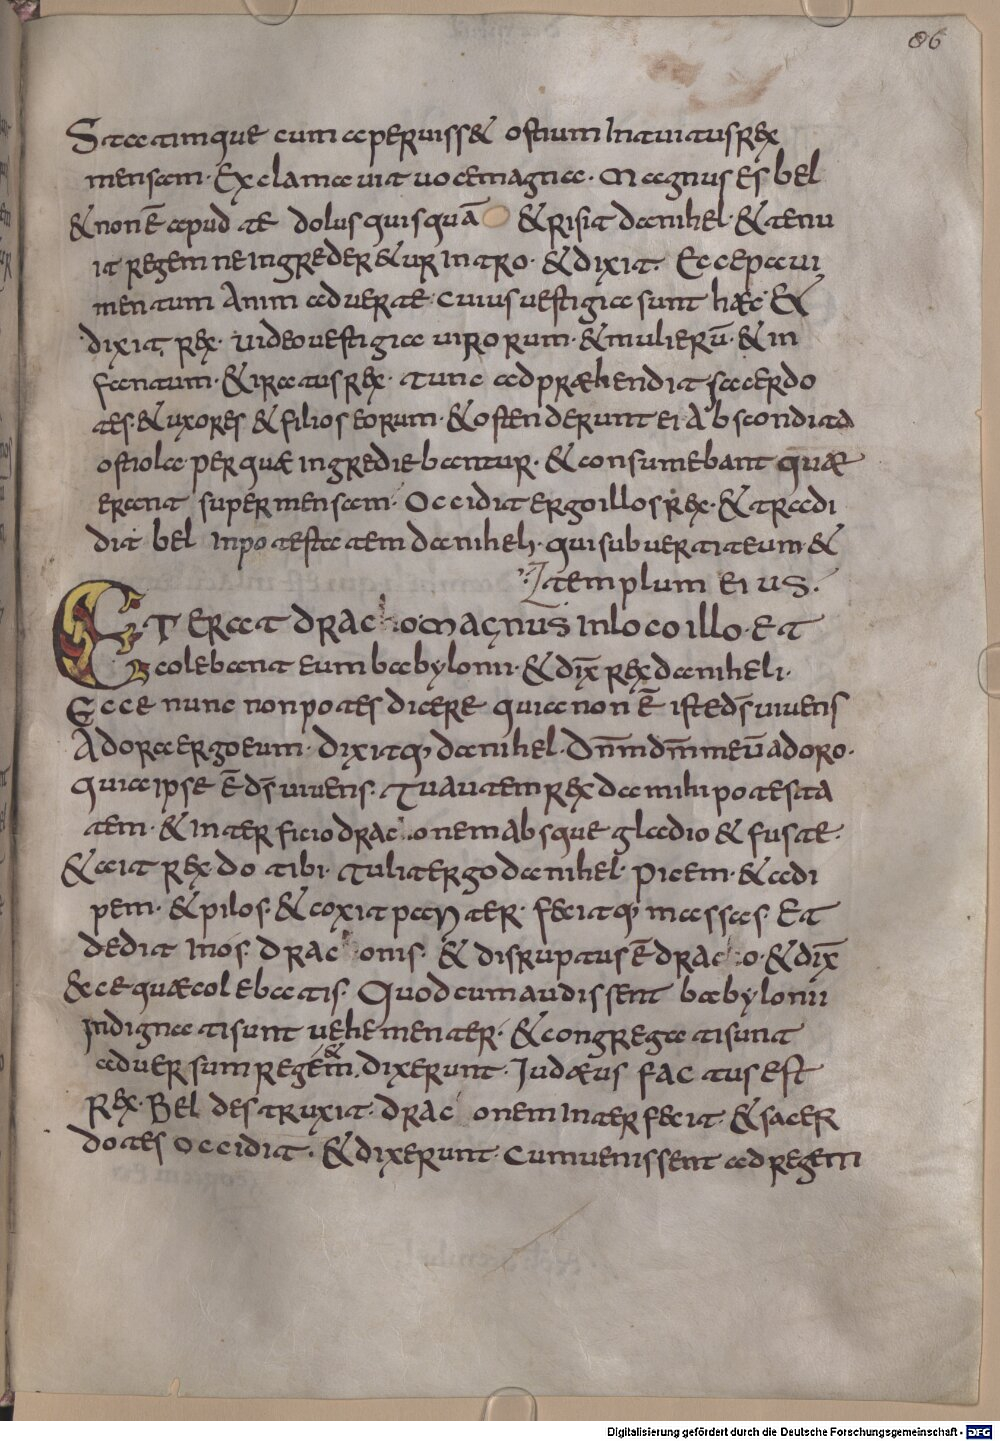 86
Statimque cum aperuiss& ostium Intuitus rex
mensam· Exclamauit uoce magna· Magnus es bel
& non ē apud te dolus quisquā & risit danihel· & tenu
it regem ne ingreder&ur intro· & dixit· Ecce paui
mentum Animaduerte· cuius uestigia sunt haec· Et
dixit rex· uideo uestigia uirorum· & mulierū· & in
fantum· & iratus rex· tunc adpræhendit sacerdo
tes· & uxores & filios eorum· & ostenderunt ei· Abscondita
ostiola· per quæ ingrediebantur· & consumebant quæ
erant super mensam· Occidit ergo illos rex· & tradi
dit bel in potestatem danihel·· qui subuertit eum· &
templum eius·
Et erat draco magnus in loco illo· Et
colebant eum babylonii· & dix̄ rex daniheli·
Ecce nunc non potes dicere quia non ē iste ds̄ uiuens
Adora ergo eum· dixitq; danihel· Dn̄m dm̄ meū adoro·
quia ipse ē ds̄ uiuens· Tu autem rex da mihi potesta
tem· & interficio draconem absque gladio & fuste·
& ait rex· do tibi· Tulit ergo danihel· picem· & adi
pem· & pilos· & coxit pariter· fecitq; massas· Et
dedit In os· draconis· & disruptus ē draco· & dix̄
&ce quæ colebatis· Quod cum audissent babylonii
Indignati sunt uehementer· & congregati sunt
&
aduersum regem· dixerunt· Iudæus factus est
rex· Bel destruxit· draconem interfecit· & sacer
dotes occidit· & dixerunt· Cum uenissent ad regem
Digitalisierung gefördert durch die Deutsche Forschungsgemeinschaft - DFG